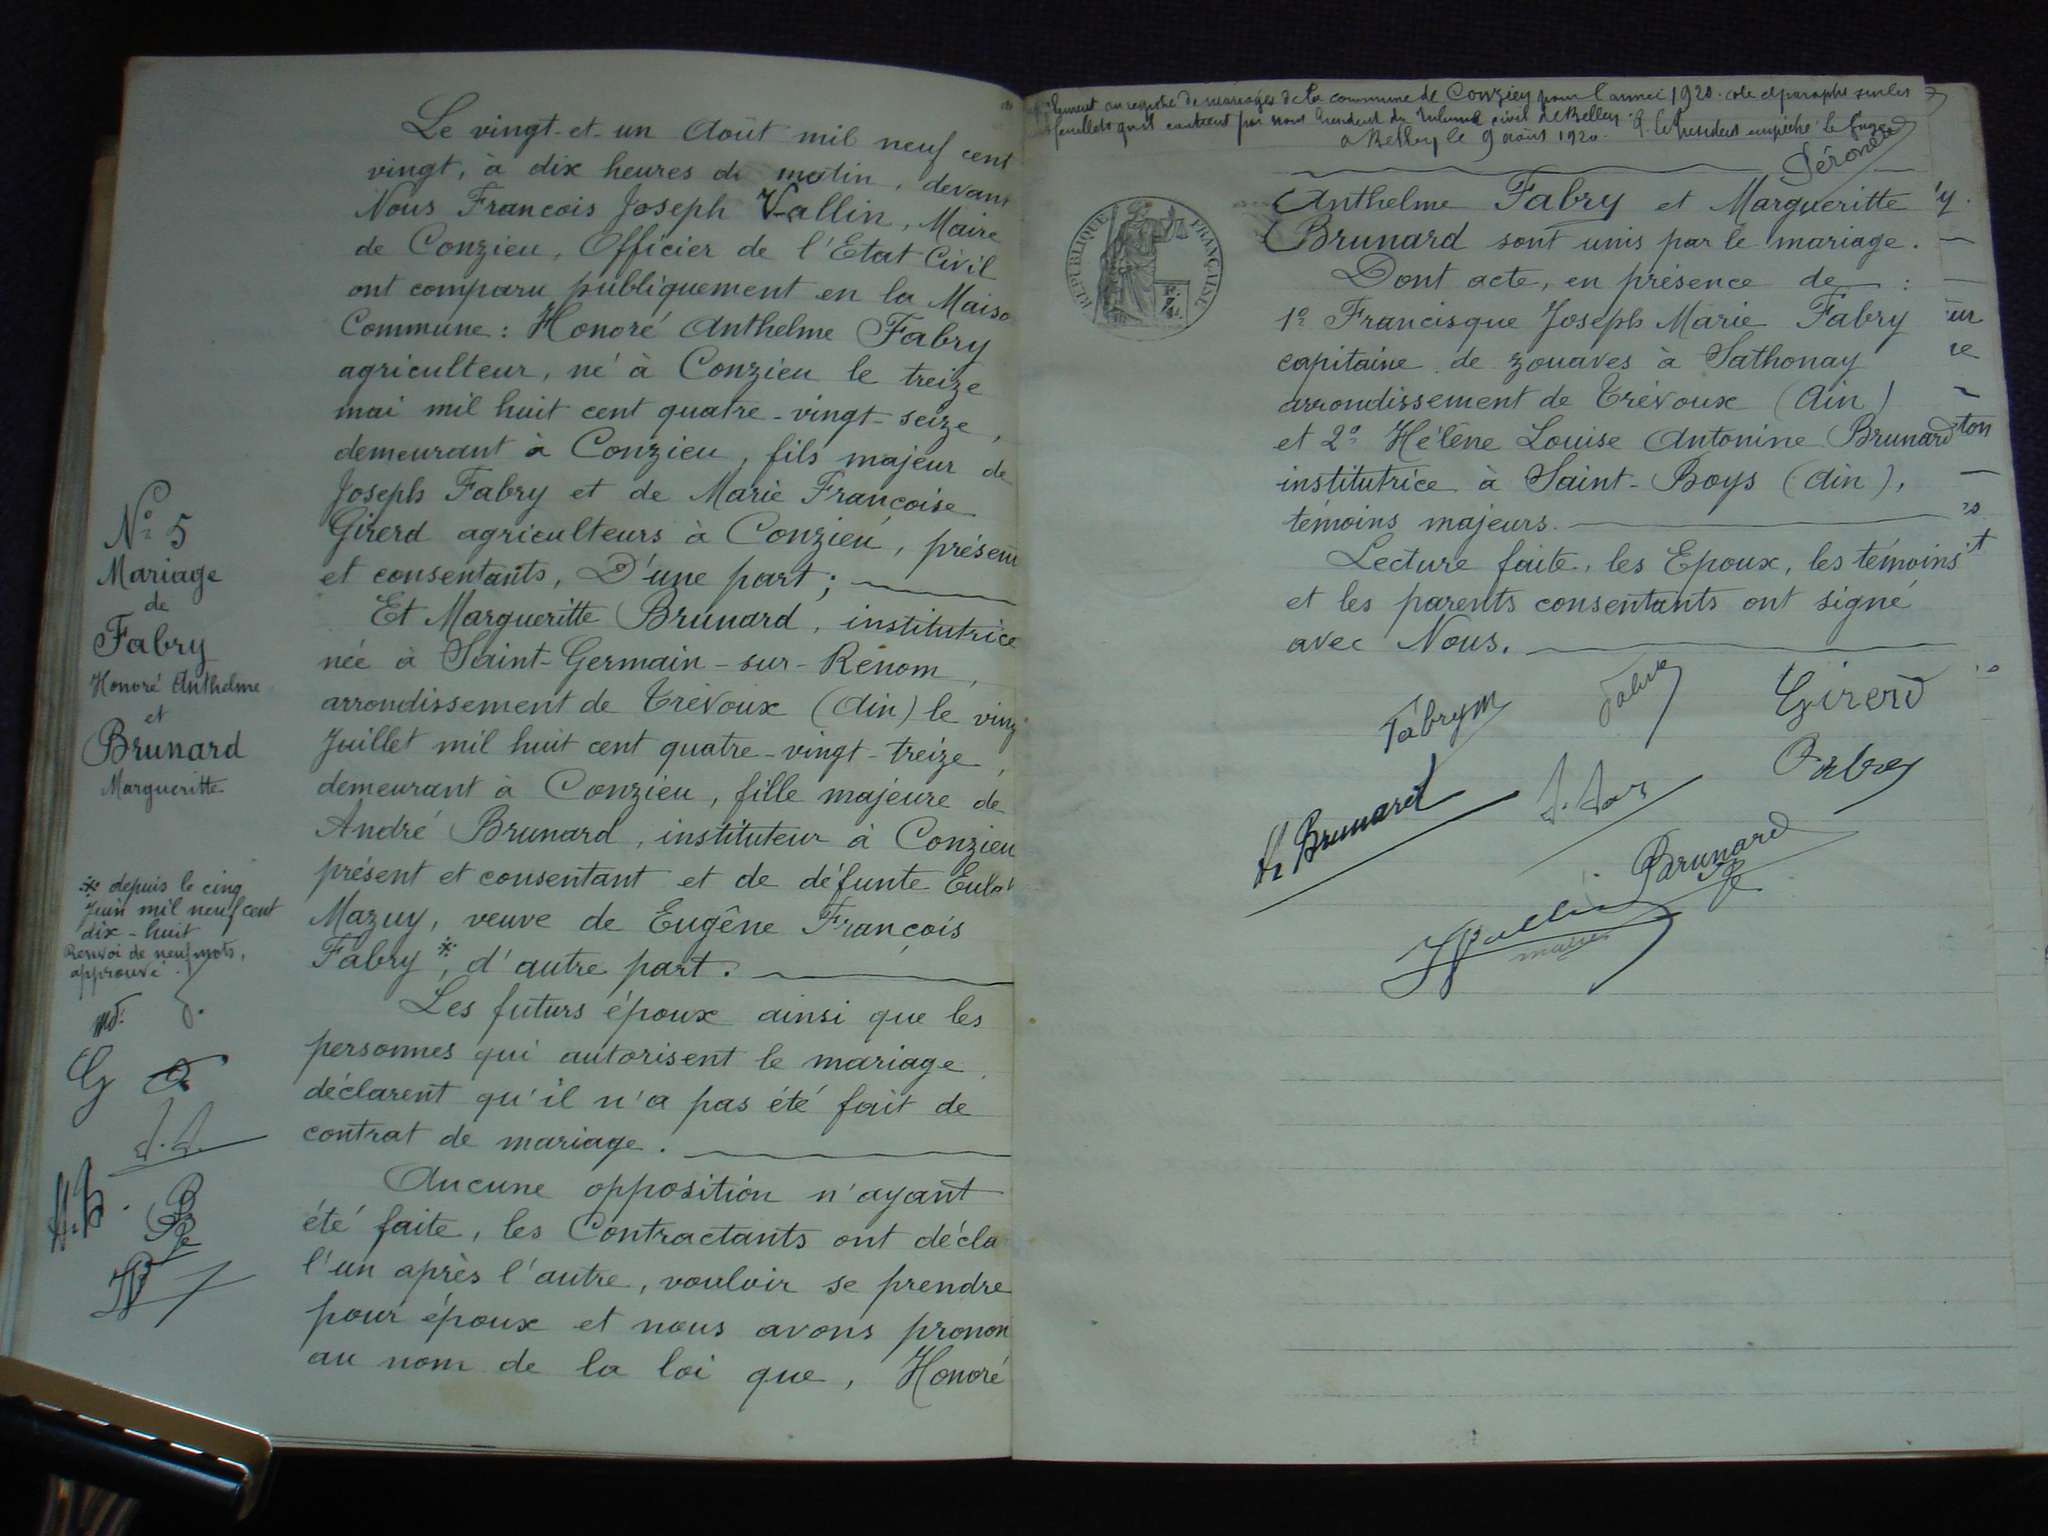 Le vingt-et-un Août mil neuf cent
vingt, à dix heures du matin, devant
Nous Francois Joseph Vallin, Maire
de Conzieu, Officier de l'Etat Civil
ont comparu publiquement en la Maiso
Commune : Honoré Anthelme Fabry
agriculteur, né à Conzieu le treize
mai mil huit cent quatre-vingt-seize,
demeurant à Conzieu, fils majeur de
Joseph Fabry et de Marie Françoise
Girerd agriculteurs à Conzieu, présent
et consentants, D'une part;
Et Margueritte Brunard, institutrice
née à Saint-Germain-sur-Renom,
arrondissement de Trévoux (Ain) le ving
Juillet mil huit cent quatre-vingt-treize,
demeurant à Conzieu, fille majeure de
André Brunard, instituteur à Conzieu
présent et consentant et de défunte
Mazuy, veuve de Eugêne François
Fabry*, d'autre part.
Les futurs époux ainsi que les
personnes qui autorisent le mariage
déclarent qu'il n'a pas été fait de
contrat de mariage.
Aucune opposition n'ayant
été faite, les Contractants ont décla
l'un après l'autre, vouloir se prendre
pour époux et nous avons pronon
au nom de la loi que, Honoré
N° 5
Mariage
de
Fabry
Honoré Anthelme
et
Brunard
Margueritte
* depuis le cinq
Juin mil neuf cent
dix-huit
Renvoi de neuf mots,
approuvé.
G
J.
H.B.
B
au registre de mariages de la commune de Conzieu pour l'année 1920. coté et paraphé
feuillets qu'il contient par nous Président du tribunal civil de Belley. P. le Président empêché le Juge
a Belley le 9 août 1920.
REPUBLIQUE FRANÇAISE
Anthelme Fabry et Margueritte
Brunard sont unis par le mariage.
Dont acte, en présence de :
1° Francisque Joseph Marie Fabry
capitaine de zouaves à Sathonay
arrondissement de Trévoux (Ain)
et 2° Hélène Louise Antonine Brunard
institutrice à Saint-Boys (Ain),
témoins majeurs.
Lecture faite, les Epoux, les témoins
et les parents consentants ont signé
avec Nous.
Fabry Girerd
H Brunard
Brunard
Vallin
maire